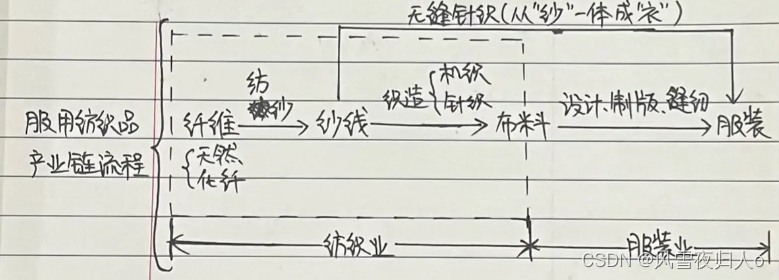 无缝针织(从"纱"一体成"衣")
纺纱
织造 机织 针织
服用纺织品产业链流程
纤维 纱线 布料 设计、制版、缝纫 服装
天然
化纤
纺织业 服装业
CSDN @风雪夜归人o